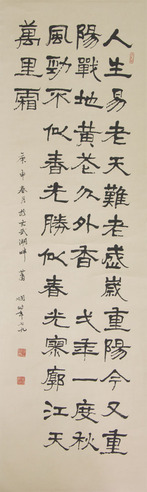 人生易老天難老歲歲重陽今又重
陽戰地黄花分外香弌年一度秋
風勁不似春光勝似春光寥廓江天
萬里霜
庚申春月於玄武湖畔 蕭
嫻時年七九